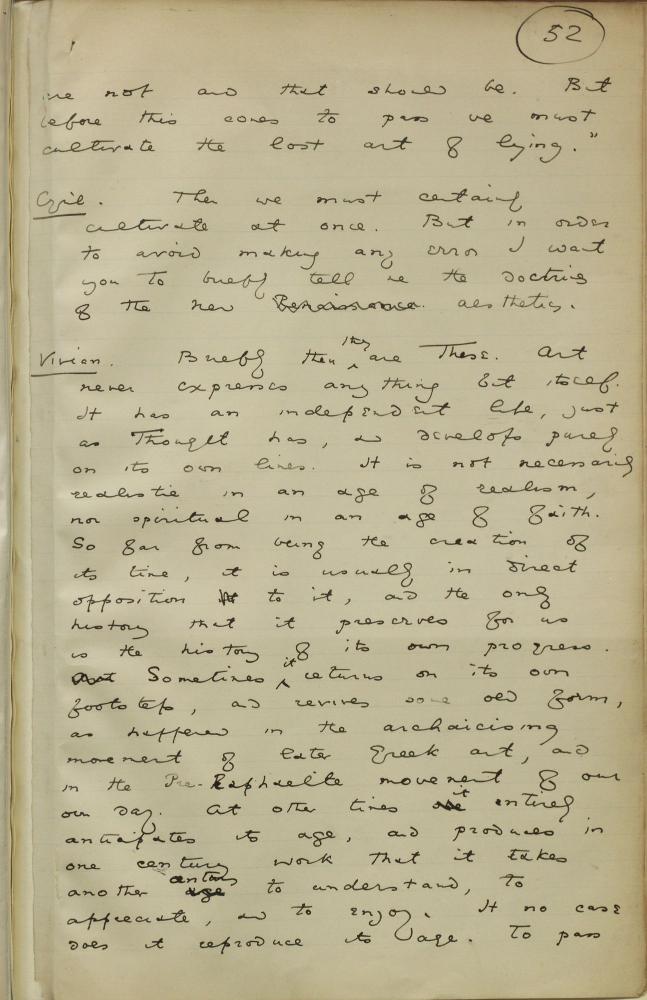 52
are not and that should be. But
before this comes to pass we must
cultivate the lost art of lying."
Cyril. Then we must certainly
cultivate at once. But in order
to avoid making any error I want
you to briefly tell me the doctrines
of the new Renaissance aesthetics.
Vivian. Briefly then they are These. Art
never expresses anything but itself.
It has an independent life, just
as Thought has, and develops purely
on its own lines. It is not necessarily
realistic in an age of realism,
nor spiritual in an age of faith.
So far from being the creation of
its time, it is usually in direct
opposition to it, and the only
history that it preserves for us
is the history of its own progress.
Sometimes it returns on its own
footsteps, and revives some old form,
as happened in the archaicising
movement of later Greek art, and
in the Pre-Raphaelite movement of our
own day. At other times it entirely
anticipates its age, and produces in
one century work that it takes
another century to understand, to
appreciate, and to enjoy. In no case
does it reproduce its age. To pass